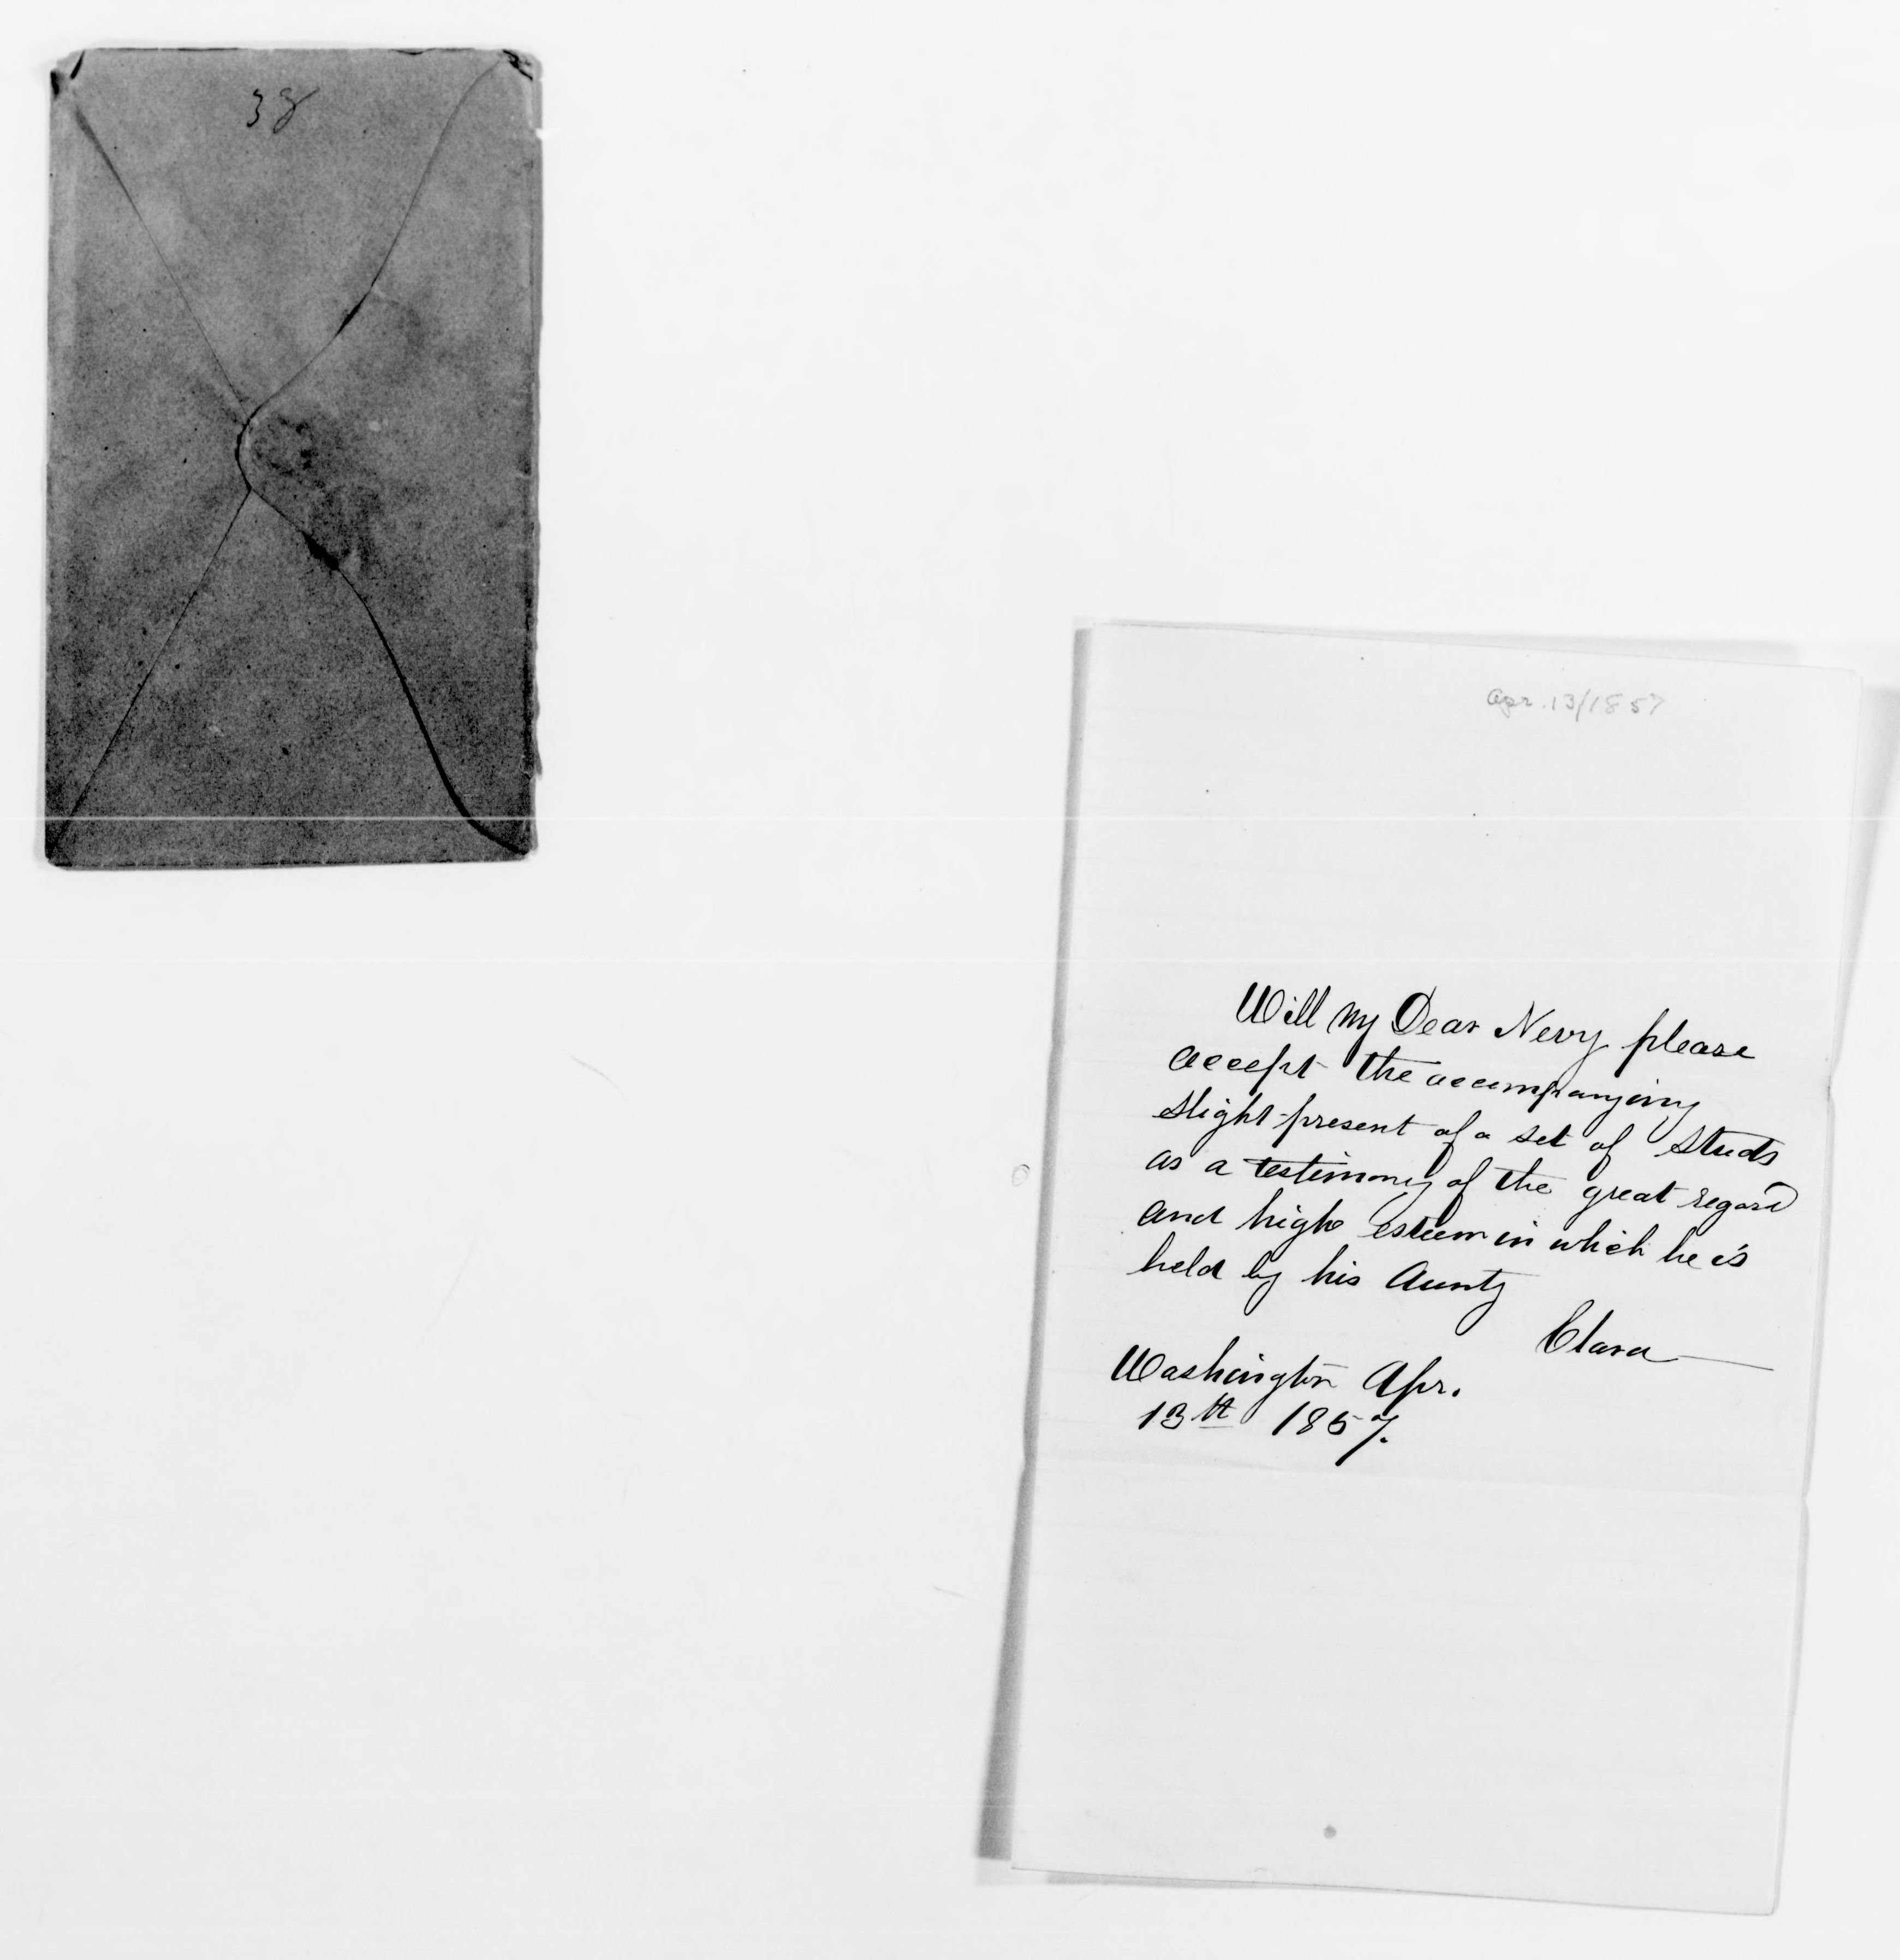 38
Apr. 13/1857
Will my Dear Nevy please
accept the accompanying
slight present of a set of studs
as a testimony of the great regard
and high esteem in which he is
held by his Aunty
Clara
Washington Apr.
13th 1857.